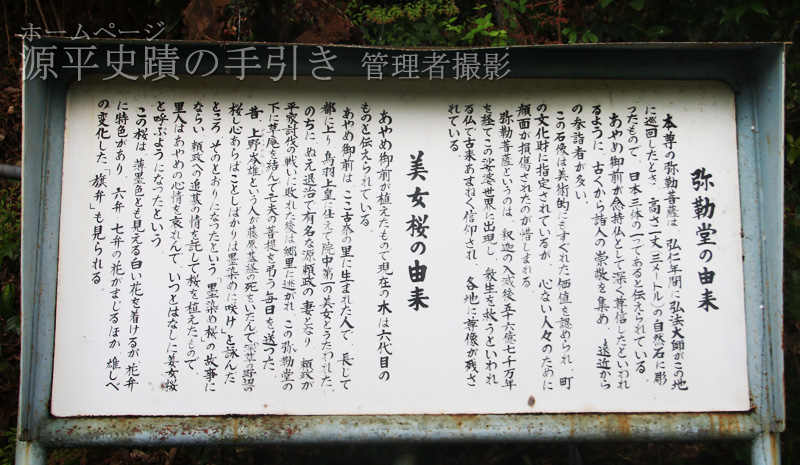 ホームページ
源平史蹟の手引き 管理者撮影
弥勒堂の由来
本尊の弥勒菩薩は、弘仁年間に弘法大師がこの地
に巡回したとき、高さ一丈(三メートル)の自然石に彫
ったもので、日本三体の一つであると伝えられている。
あやめ御前が念持仏として深く尊信したといわれ
るように、古くから諸人の崇敬を集め、遠近から
の参詣者が多い。
この石像は美術的にもすぐれた価値を認められ、町
の文化財に指定されているが、心ない人々のために
顔面が損傷されたのが惜しまれる。
弥勒菩薩というのは、釈迦の入滅後五十六億七千万年
を経てこの娑婆世界に出現し、救生を救うといわれ
る仏で古来あまねく信仰され、各地に尊像が残さ
れている。
美女桜の由来
あやめ御前が植えたもので現在の木は六代目の
ものと伝えられている。
あやめ御前は、ここ古奈の里に生まれた人で、長じて
都に上り、鳥羽上皇に仕えて院中第一の美女とうたわれた。
のちに、ぬえ退治で有名な源頼政の妻となり、頼政が
平家討伐の戦いに敗れた後は郷里に逃がれ、この弥勒堂の
下に草庵を結んで亡夫の菩提を弔う毎日を送った。
昔、上野岑雄という人が藤原基経の死をいたんで「深草の野辺の
桜し心あらばことしばかりは墨染めに咲け」と詠んだ
ところ、そのとおりになったという「墨染の桜」の故事に
ならい、頼政への追慕の情を託して桜を植えたもので、
里人はあやめの心情を哀れんで、いつとはなしに美女桜
と呼ぶようになったという。
この桜は、薄墨色とも見える白い花を着けるが、花弁
に特色があり、六弁、七弁の花がまじるほか、雄しべ
の変化した「旗弁」も見られる。